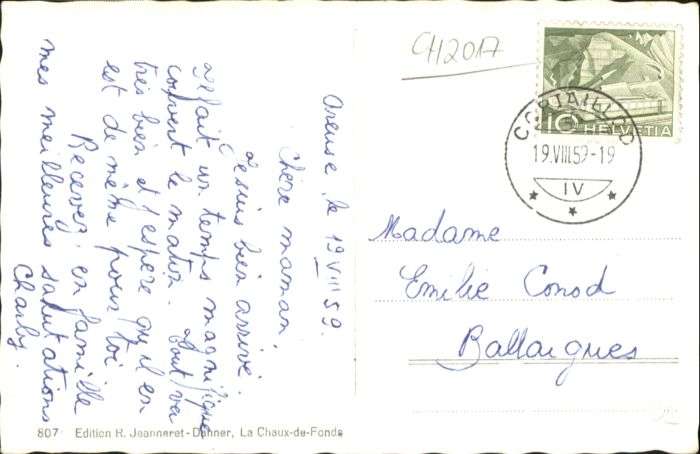 Areuse, le 19 VIII 59.
Chère maman,
Je suis bien arrivé.
Il fait un temps magnifique
couvert le matin. Tout va
très bien et j'espère qu'il en
est de même pour toi
Recevez en famille
mes meilleures salutations
Charly.
CH2017
10 HELVETIA
CORTAILLOD
19.VIII.59-19
IV
Madame
Emilie Conod
Ballaigues
807 Edition R. Jeanneret-Danner, La Chaux-de-Fonds